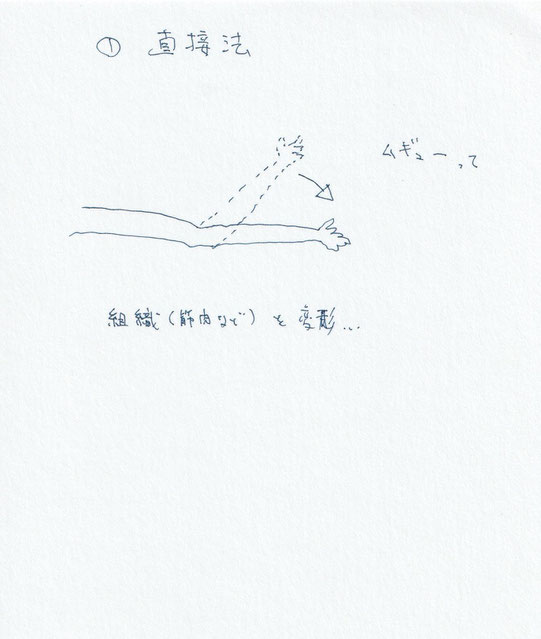 ① 直接法
ムギューって
組織(筋肉など)を変形...